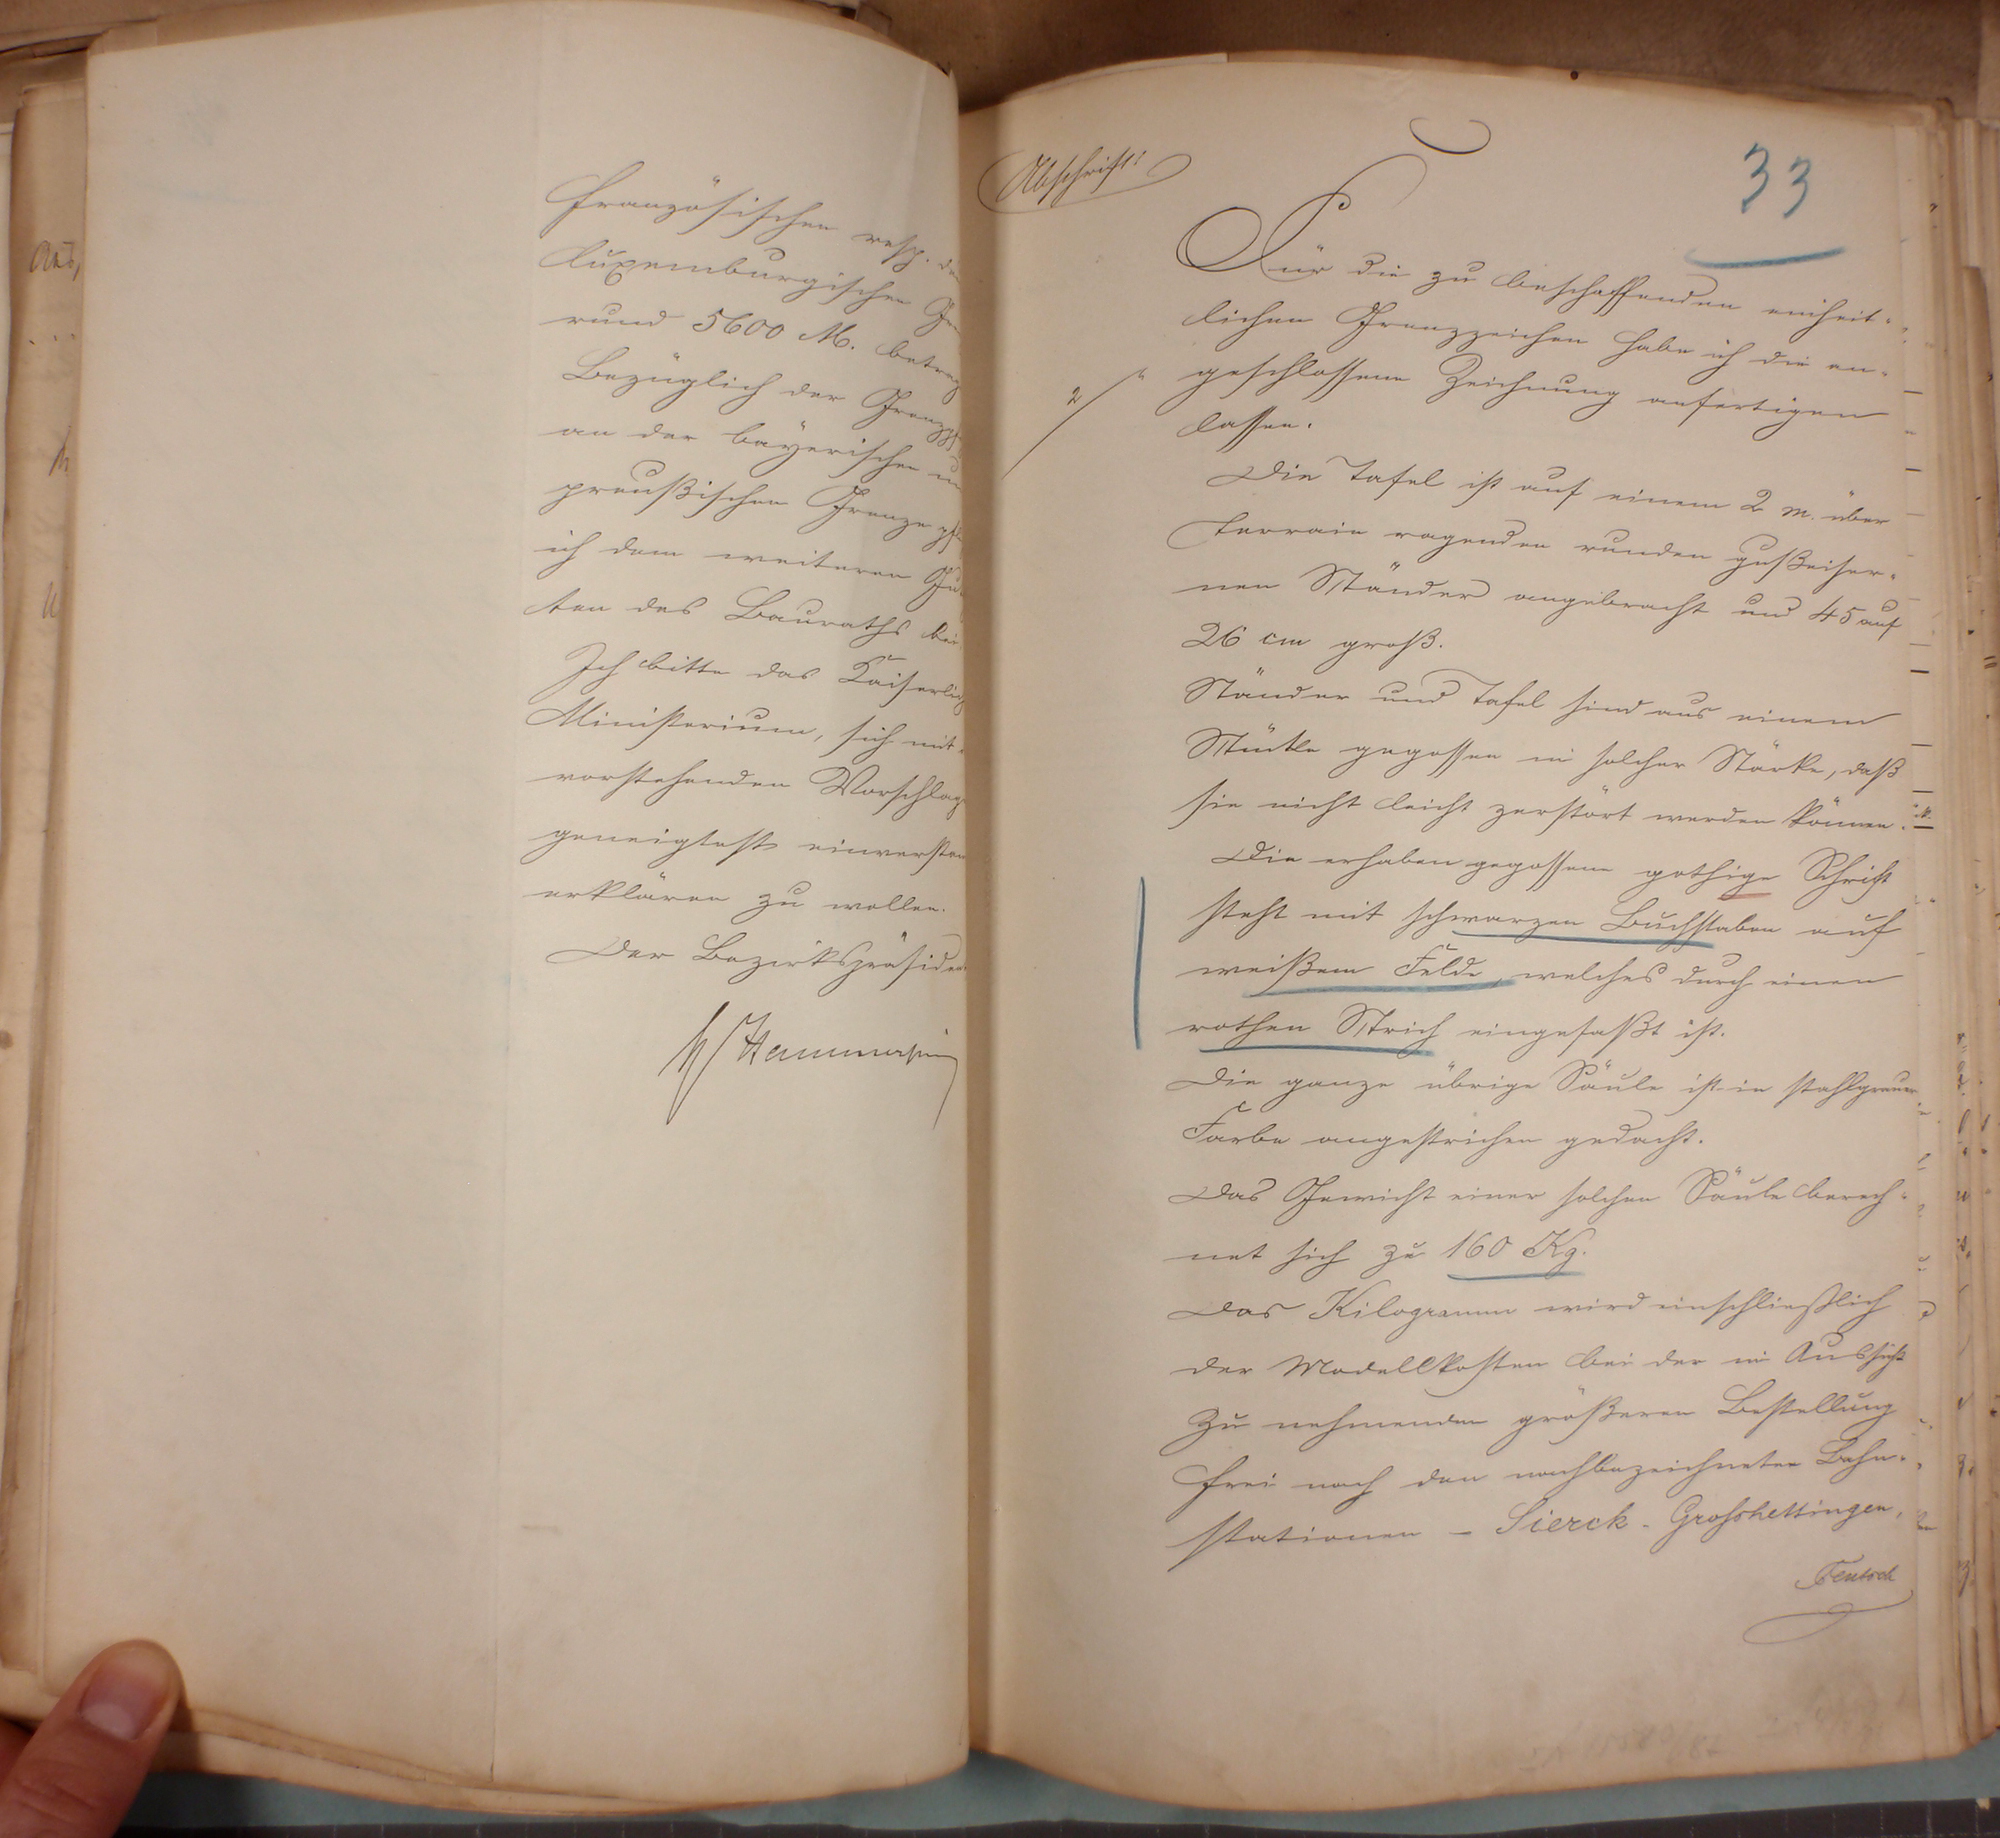 französischen resp. der
Luxemburgischen Gre
rund 5600 M. betrag
Bezüglich der Grenzpf
an der bayerischen un
preußischen Grenze
ich dem weiteren Gu
ten des Bauraths bei.
Ich bitte das Kaiserlich
Ministerium, sich mit
vorstehenden Vorschläg
geneigtest einverstan
erklären zu wollen.
Der Bezirkspräsident
v Hammerstein
Abschrift!
33
Für die zu beschaffenden einheit-
lichen Grenzzeichen habe ich die an-
2
geschlossene Zeichnung anfertigen
lassen.
Die Tafel ist auf einem 2 m. über
Terrain ragenden runden gußeiser-
nen Ständer angebracht und 45 auf
26 cm groß.
Ständer und Tafel sind aus einem
Stücke gegossen in solcher Stärke, daß
sie nicht leicht zerstört werden können.
Die erhaben gegossene gothige Schrift
steht mit schwarzen Buchstaben auf
weißem Felde, welches durch einen
rothen Strich eingefaßt ist.
Die ganze übrige Säule ist in stahlgrauer
Farbe angestrichen gedacht.
Das Gewicht einer solchen Säule berech-
net sich zu 160 Kg.
Das Kilogramm wird einschließlich
der Modellkosten bei der in Aussicht
zu nehmenden größeren Bestellung
frei nach den nachbezeichneten Bahn-
stationen - Sierck - Grosshettingen,
Fentsch